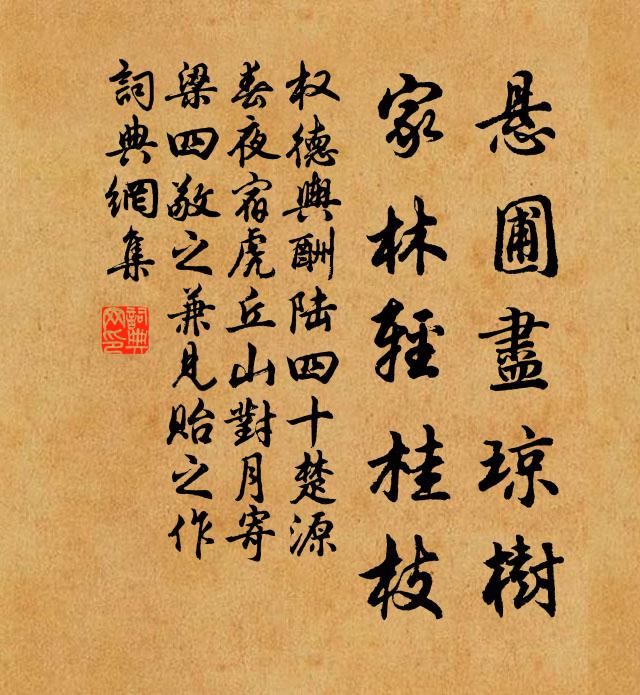 悬圃盡琼樹
家林輕桂枝
权德輿酬陆四十楚源
春夜宿虎丘山對月寄
梁四敬之兼見贻之作
詞典網集
詞典
网印